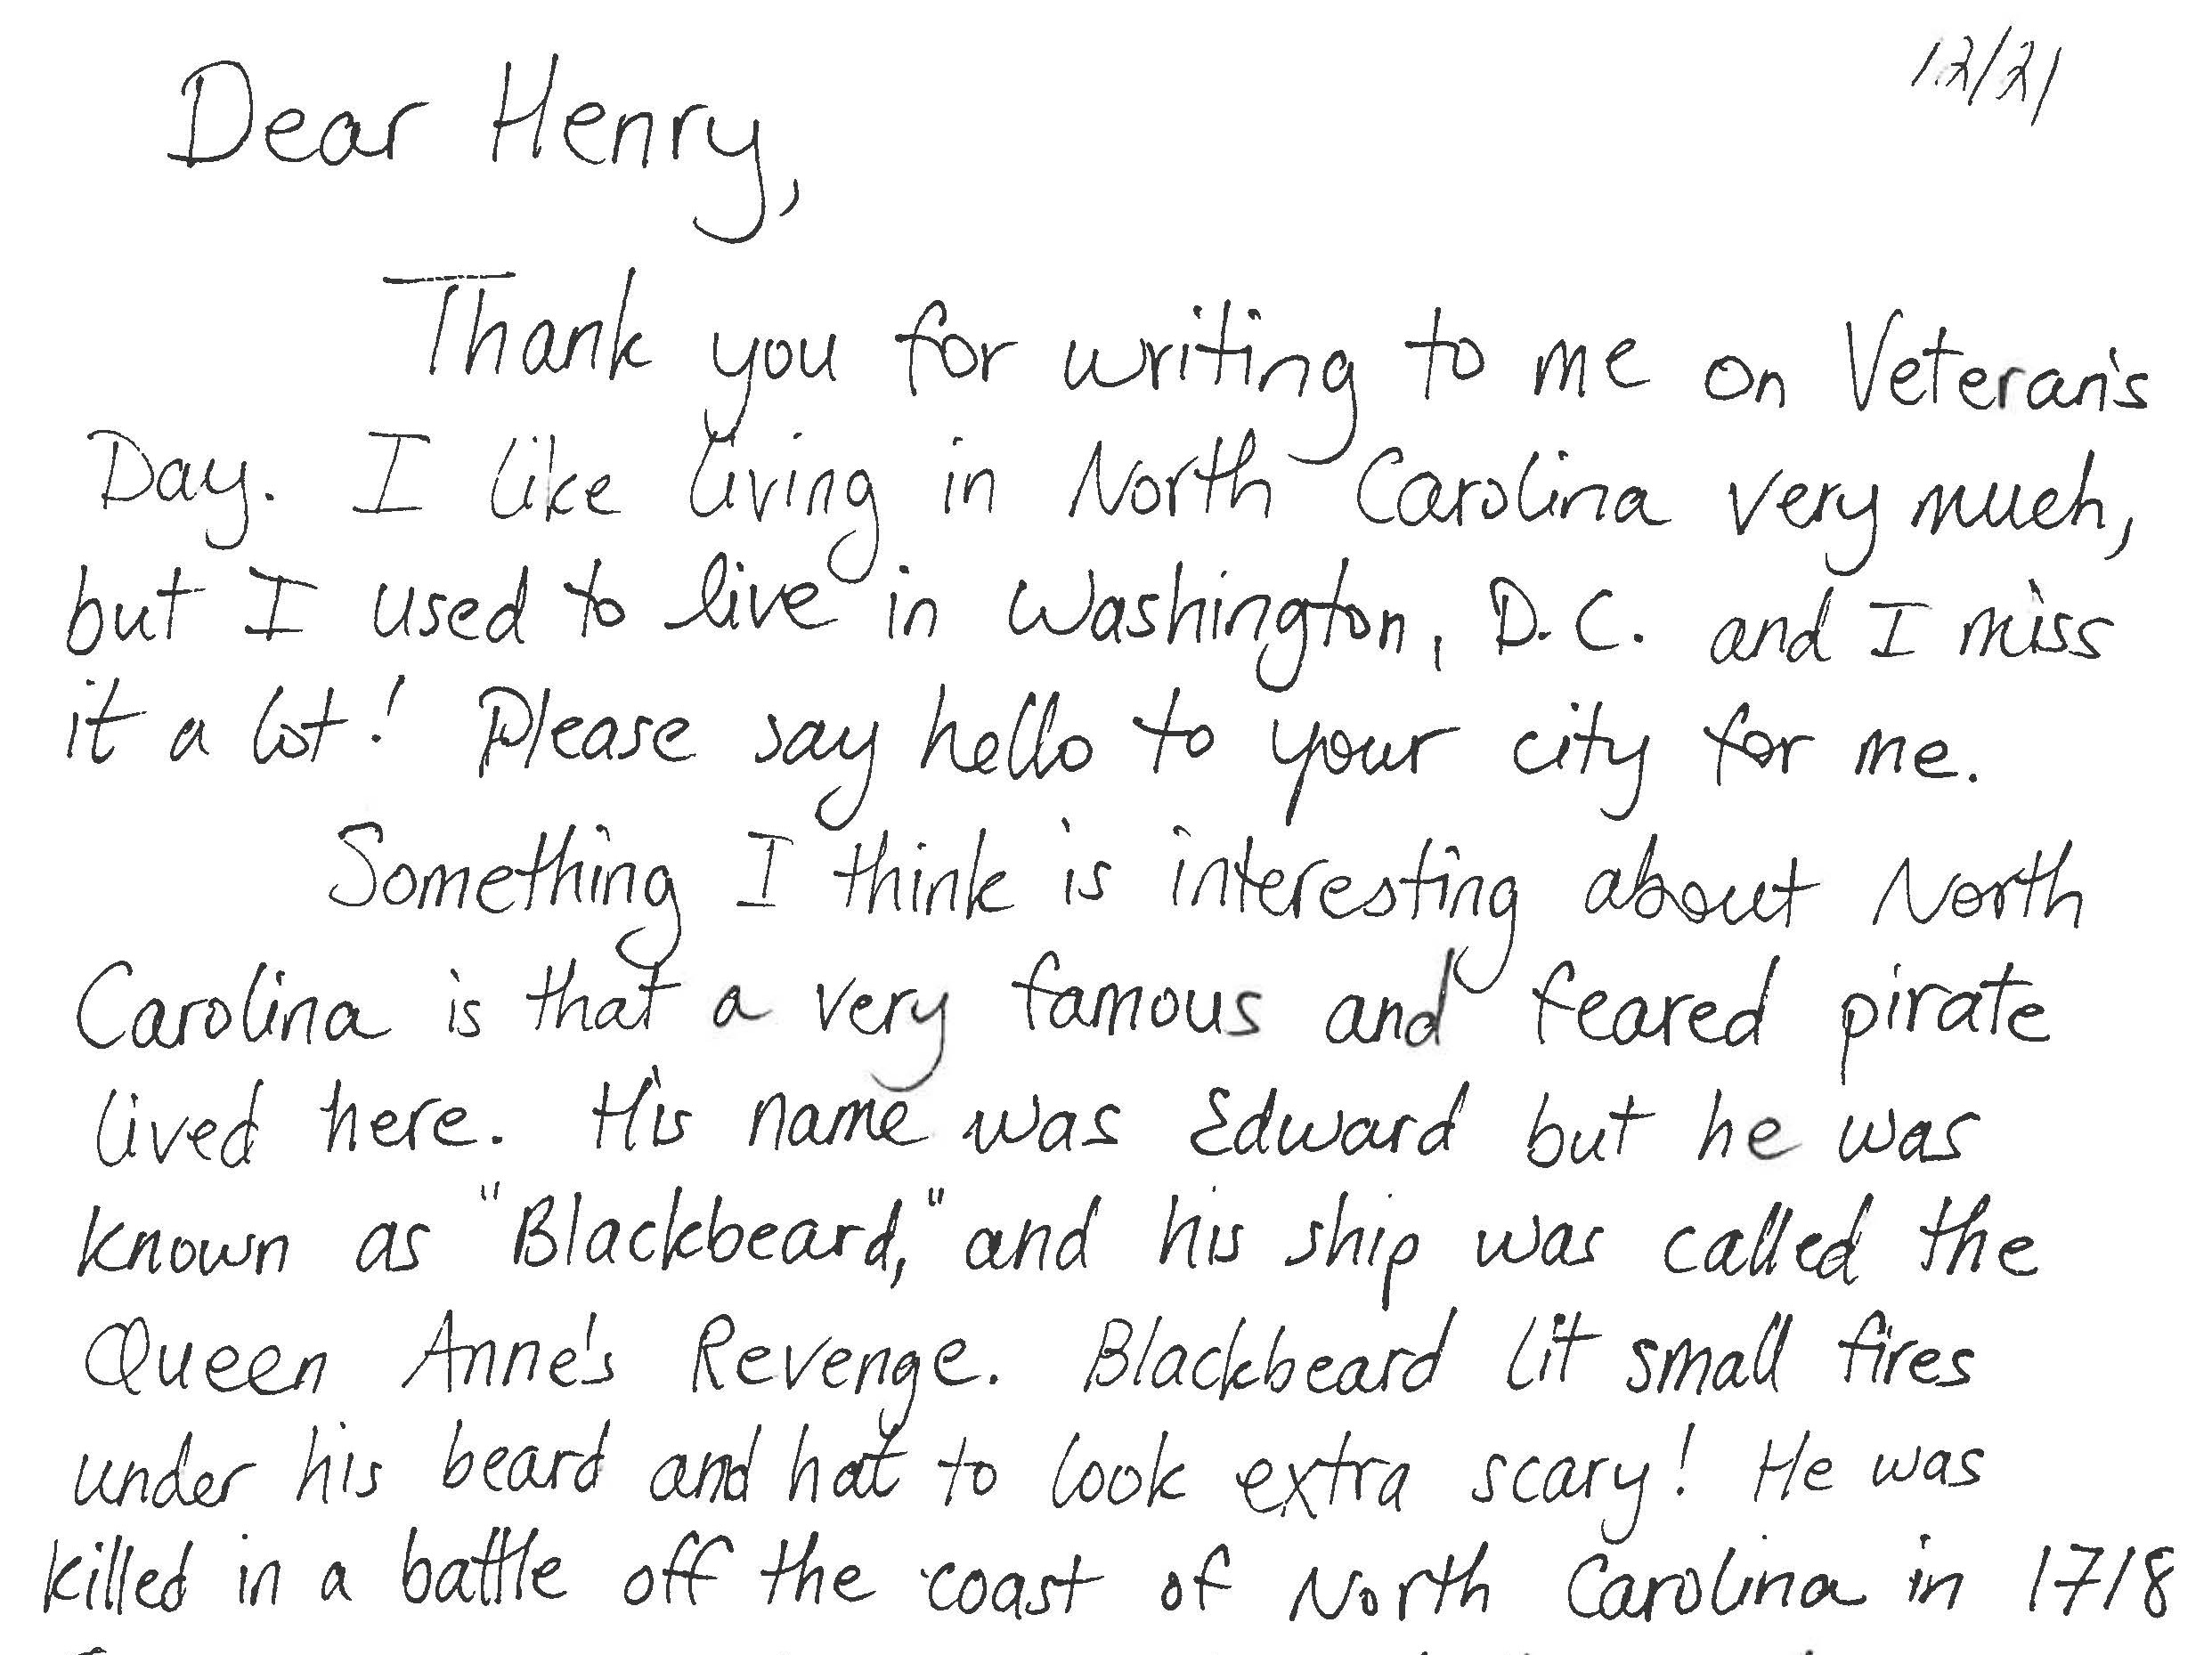 12/21
Dear Henry,
Thank you for writing to me on Veteran's
Day. I like living in North Carolina very much,
but I used to live in Washington, D.C. and I miss
it a lot! Please say hello to your city for me.
Something I think is interesting about North
Carolina is that a very famous and feared pirate
lived here. His name was Edward but he was
known as "Blackbeard," and his ship was called the
Queen Anne's Revenge. Blackbeard lit small fires
under his beard and hat to look extra scary! He was
killed in a battle off the coast of North Carolina in 1718